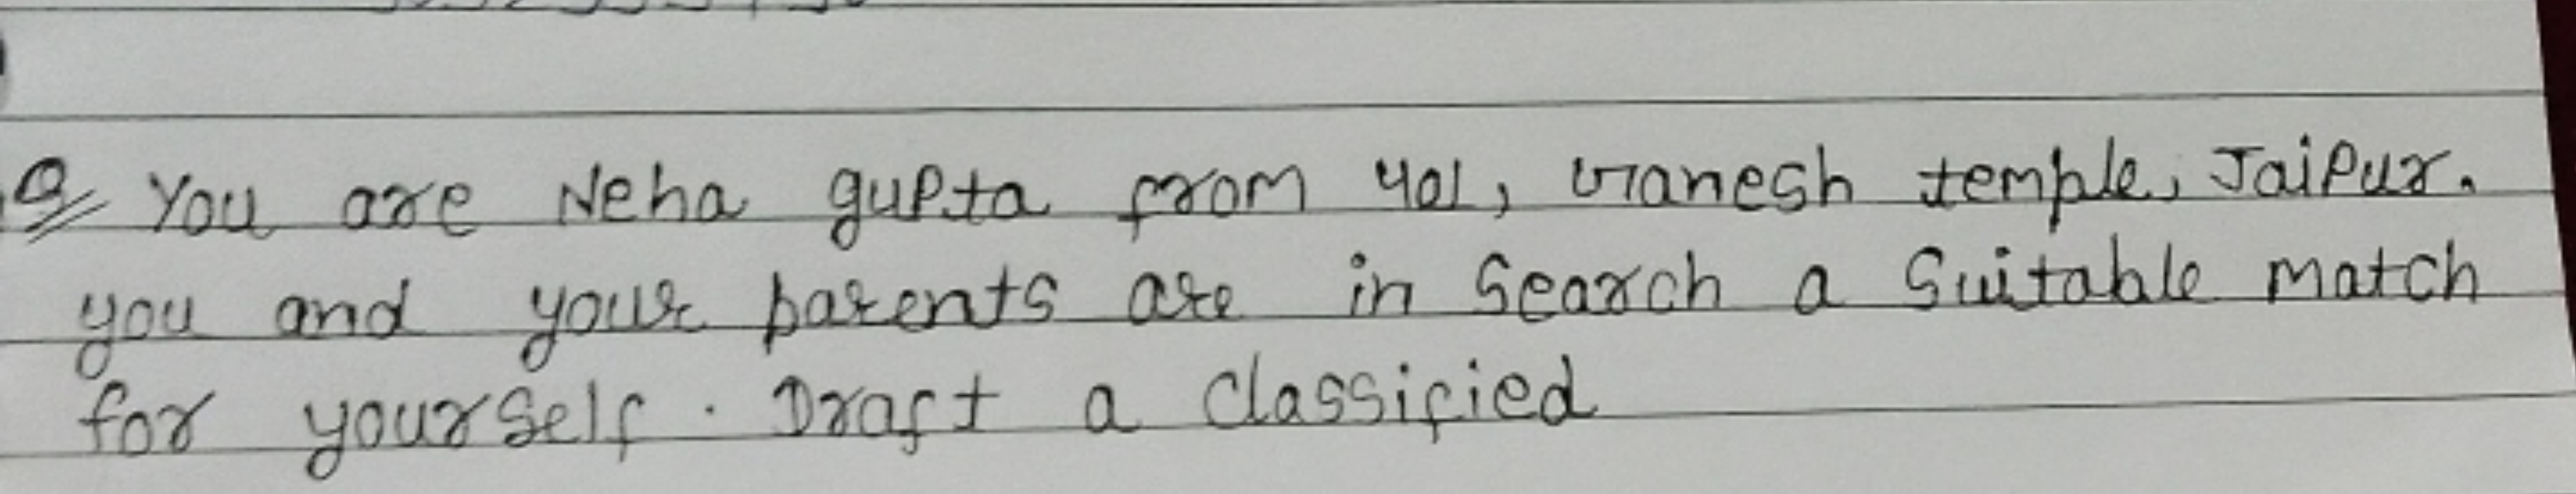 Q You are Neha gupta from 401, Ganesh temple, Jaipur.
you and your parents are in Search a Suitable match
for yourself. Draft a classified